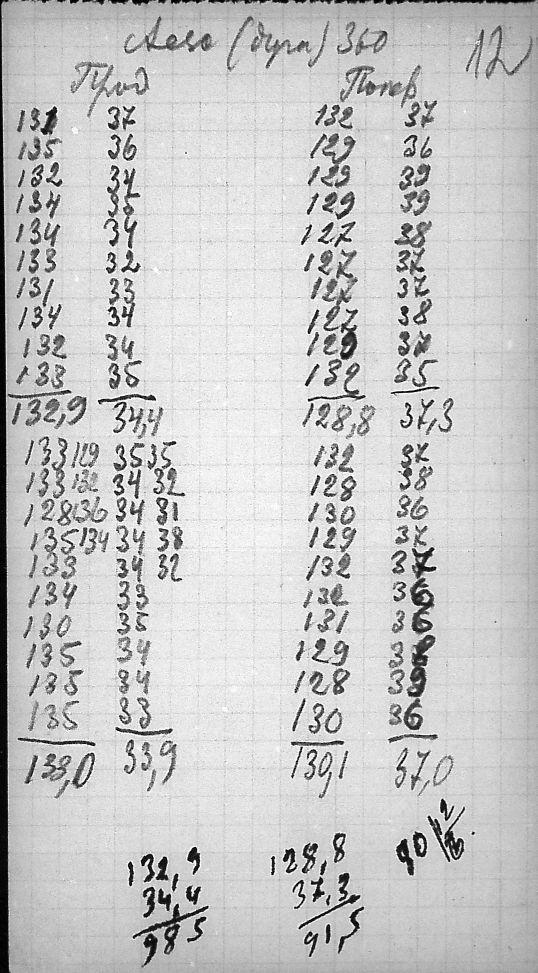 (дуги) 360 12
Прод Попер
131 37 132 37
135 36 129 36
132 34 129 39
134 35 129 39
134 34 127 38
133 32 127 37
131 33 127 37
134 34 127 38
132 34 129 37
133 35 132 35
132,9 34,4 128,8 37,3
133 129 35 35 132 37
133 132 34 32 128 38
128 136 34 31 130 36
135 134 34 38 129 37
133 34 32 132 37
134 33 132 36
130 35 131 36
135 34 129 38
135 34 128 39
135 33 130 36
133,0 33,9 130,1 37,0
132,9 128,8 90
34,4 37,3
98 5 91,5